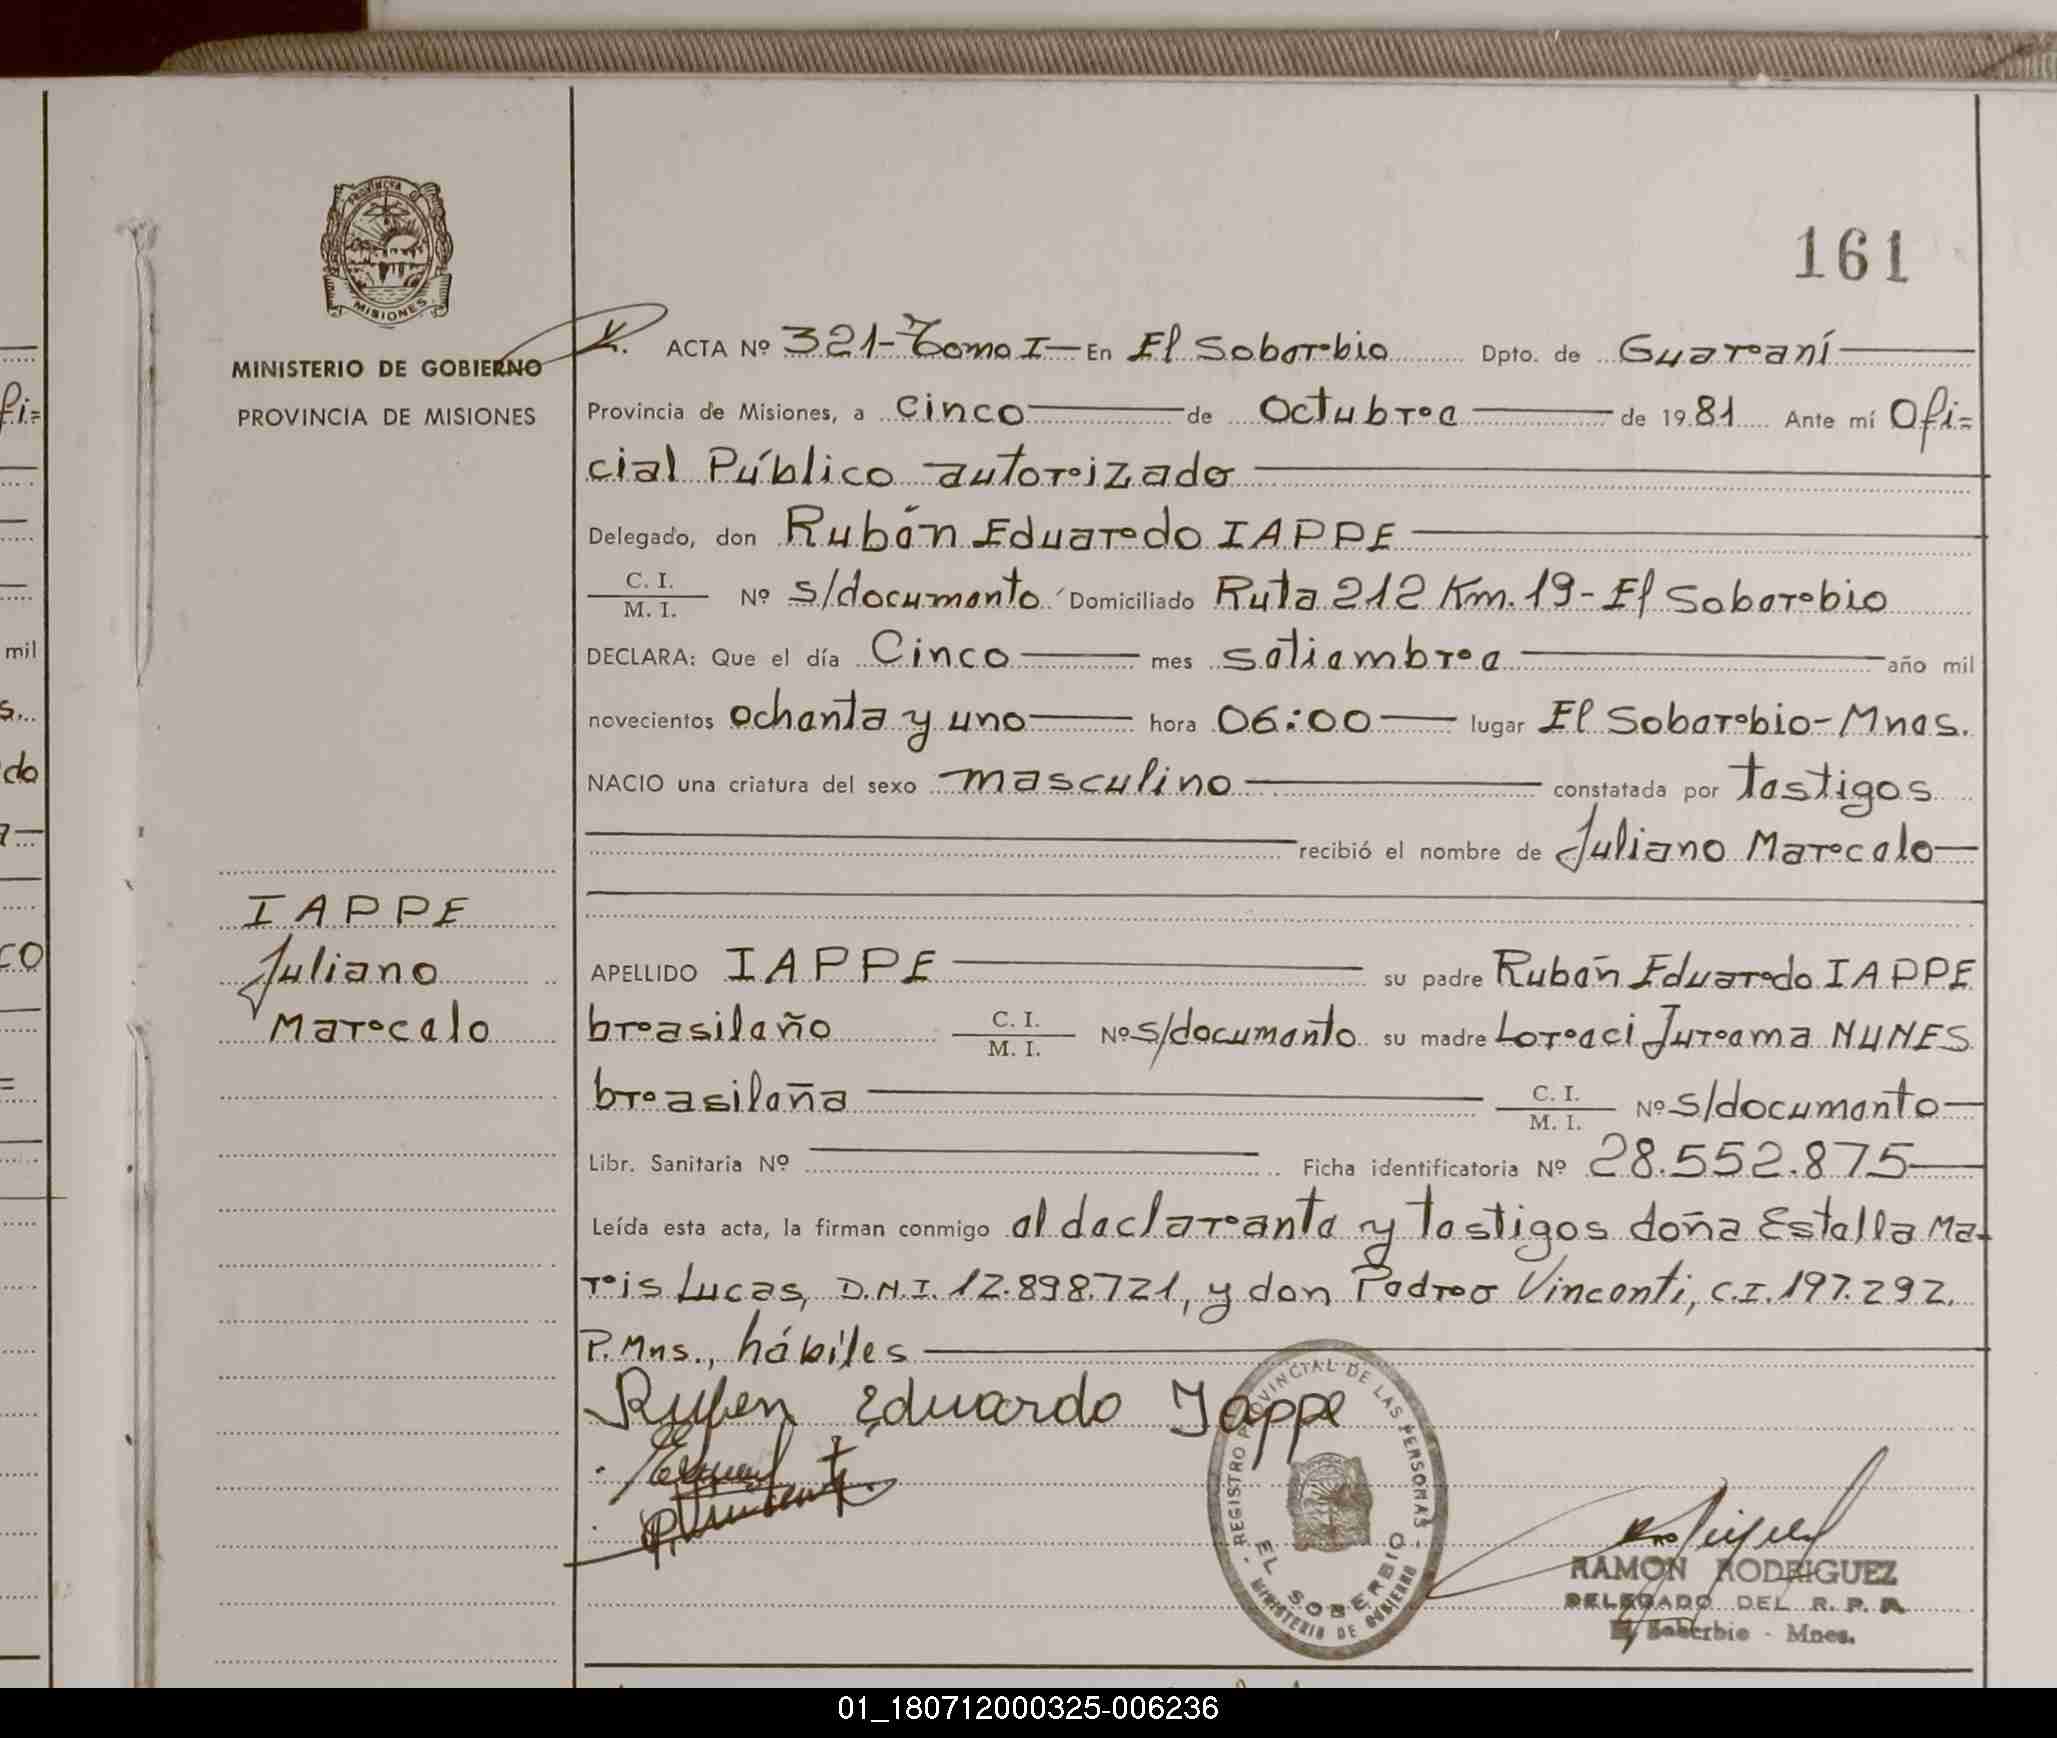 161
PROVINCIA D
MISIONES
MINISTERIO DE GOBIERNO
PROVINCIA DE MISIONES
ACTA Nº 321-Tomo I— En El Soberbio Dpto. de Guaraní
Provincia de Misiones, a cinco de Octubre de 1981 Ante mí Ofi=
cial Público autorizado
Delegado, don Rubén Eduardo IAPPE
C. I.
M. I. Nº s/documento Domiciliado Ruta 212 Km. 19- El Soberbio
DECLARA: Que el día Cinco mes setiembre año mil
novecientos ochenta y uno hora 06:00 lugar El Soberbio-Mnes.
NACIO una criatura del sexo masculino constatada por testigos
recibió el nombre de Juliano Marcelo
IAPPE
Juliano
Marcelo
APELLIDO IAPPE su padre Rubén Eduardo IAPPE
brasileño C. I. M. I. Nº s/documento su madre Loreci Jurema NUNES
brasileña C. I. M. I. Nº s/documento
Libr. Sanitaria Nº Ficha identificatoria Nº 28.552.875
Leída esta acta, la firman conmigo el declarante y testigos doña Estella Ma-
ris Lucas, D.N.I. 12.898.721, y don Pedro Vincenti, C.I. 197.292.
P. Mns., hábiles
Ruben Eduardo Iappe
REGISTRO PROVINCIAL DE LAS PERSONAS
EL SOBERBIO
MINISTERIO DE GOBIERNO
RAMON RODRIGUEZ
DELEGADO DEL R. P. P.
El Soberbio - Mnes.
fi=
mil
s.
do
co
=
01_180712000325-006236